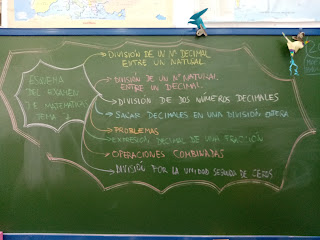 DIVISIÓN DE UN Nº DECIMAL
ENTRE UN NATURAL
DIVISIÓN DE UN Nº NATURAL
ENTRE UN DECIMAL
DIVISIÓN DE DOS NÚMEROS DECIMALES
SACAR DECIMALES EN UNA DIVISIÓN ENTERA
PROBLEMAS
EXPRESIÓN DECIMAL DE UNA FRACCIÓN
OPERACIONES COMBINADAS
DIVISIÓN POR LA UNIDAD SEGUIDA DE CEROS
ESQUEMA
DEL EXAMEN
DE MATEMÁTICAS
TEMA 7